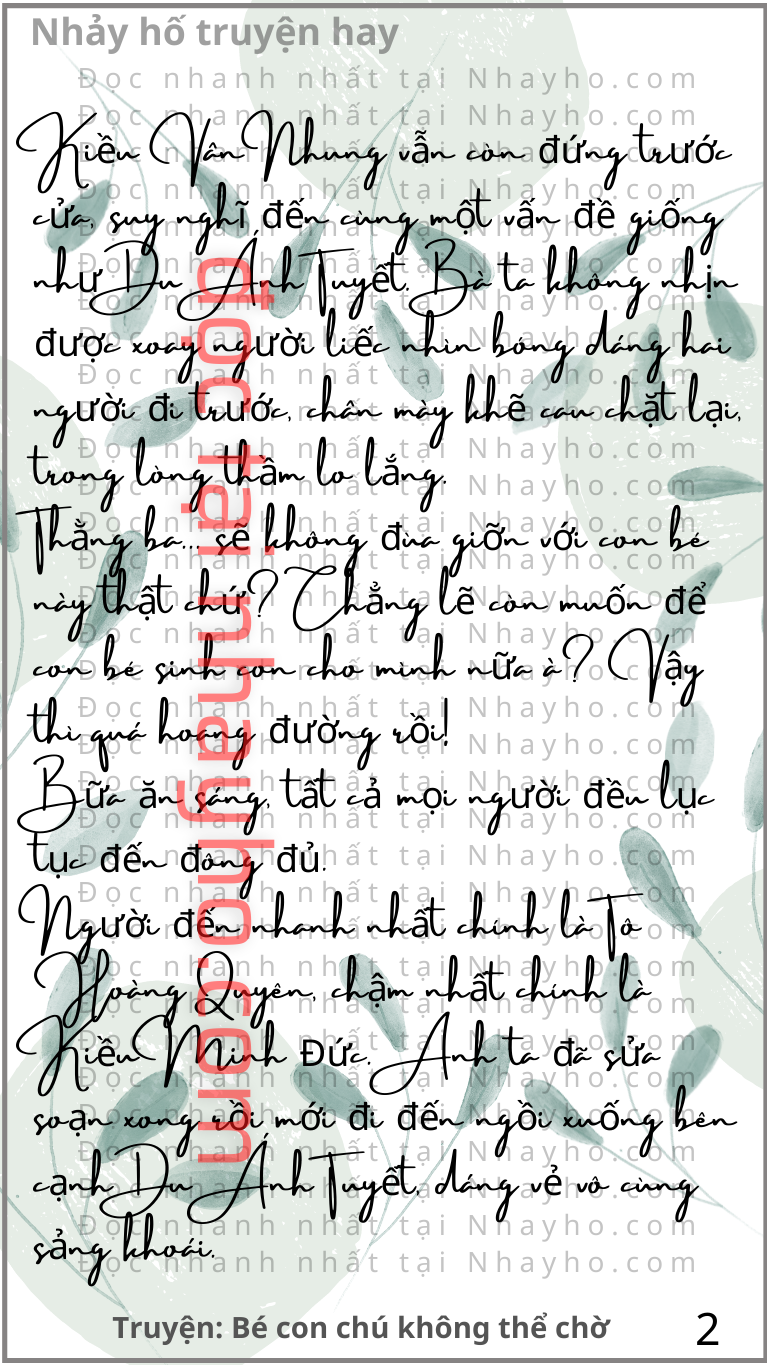 Nhảy hố truyện hay
Đọc nhanh nhất tại Nhayho.com
Kiều Vân Nhung vẫn còn đứng trước
cửa, suy nghĩ đến cùng một vấn đề giống
như Du Ánh Tuyết. Bà ta không nhịn
được xoay người liếc nhìn bóng dáng hai
người đi trước, chân mày khẽ cau chặt lại,
trong lòng thầm lo lắng.
Thằng ba... sẽ không đùa giỡn với con bé
này thật chứ? Chẳng lẽ còn muốn để
con bé sinh con cho mình nữa à? Vậy
thì quá hoang đường rồi!
Bữa ăn sáng, tất cả mọi người đều lục
tục đến đông đủ.
Người đến nhanh nhất chính là Tô
Hoàng Quyên, chậm nhất chính là
Kiều Minh Đức. Anh ta đã sửa
soạn xong rồi, mới đi đến ngồi xuống bên
cạnh Du Ánh Tuyết, dáng vẻ vô cùng
sảng khoái.
đọc tại nhayho.com
Truyện: Bé con chú không thể chờ
2